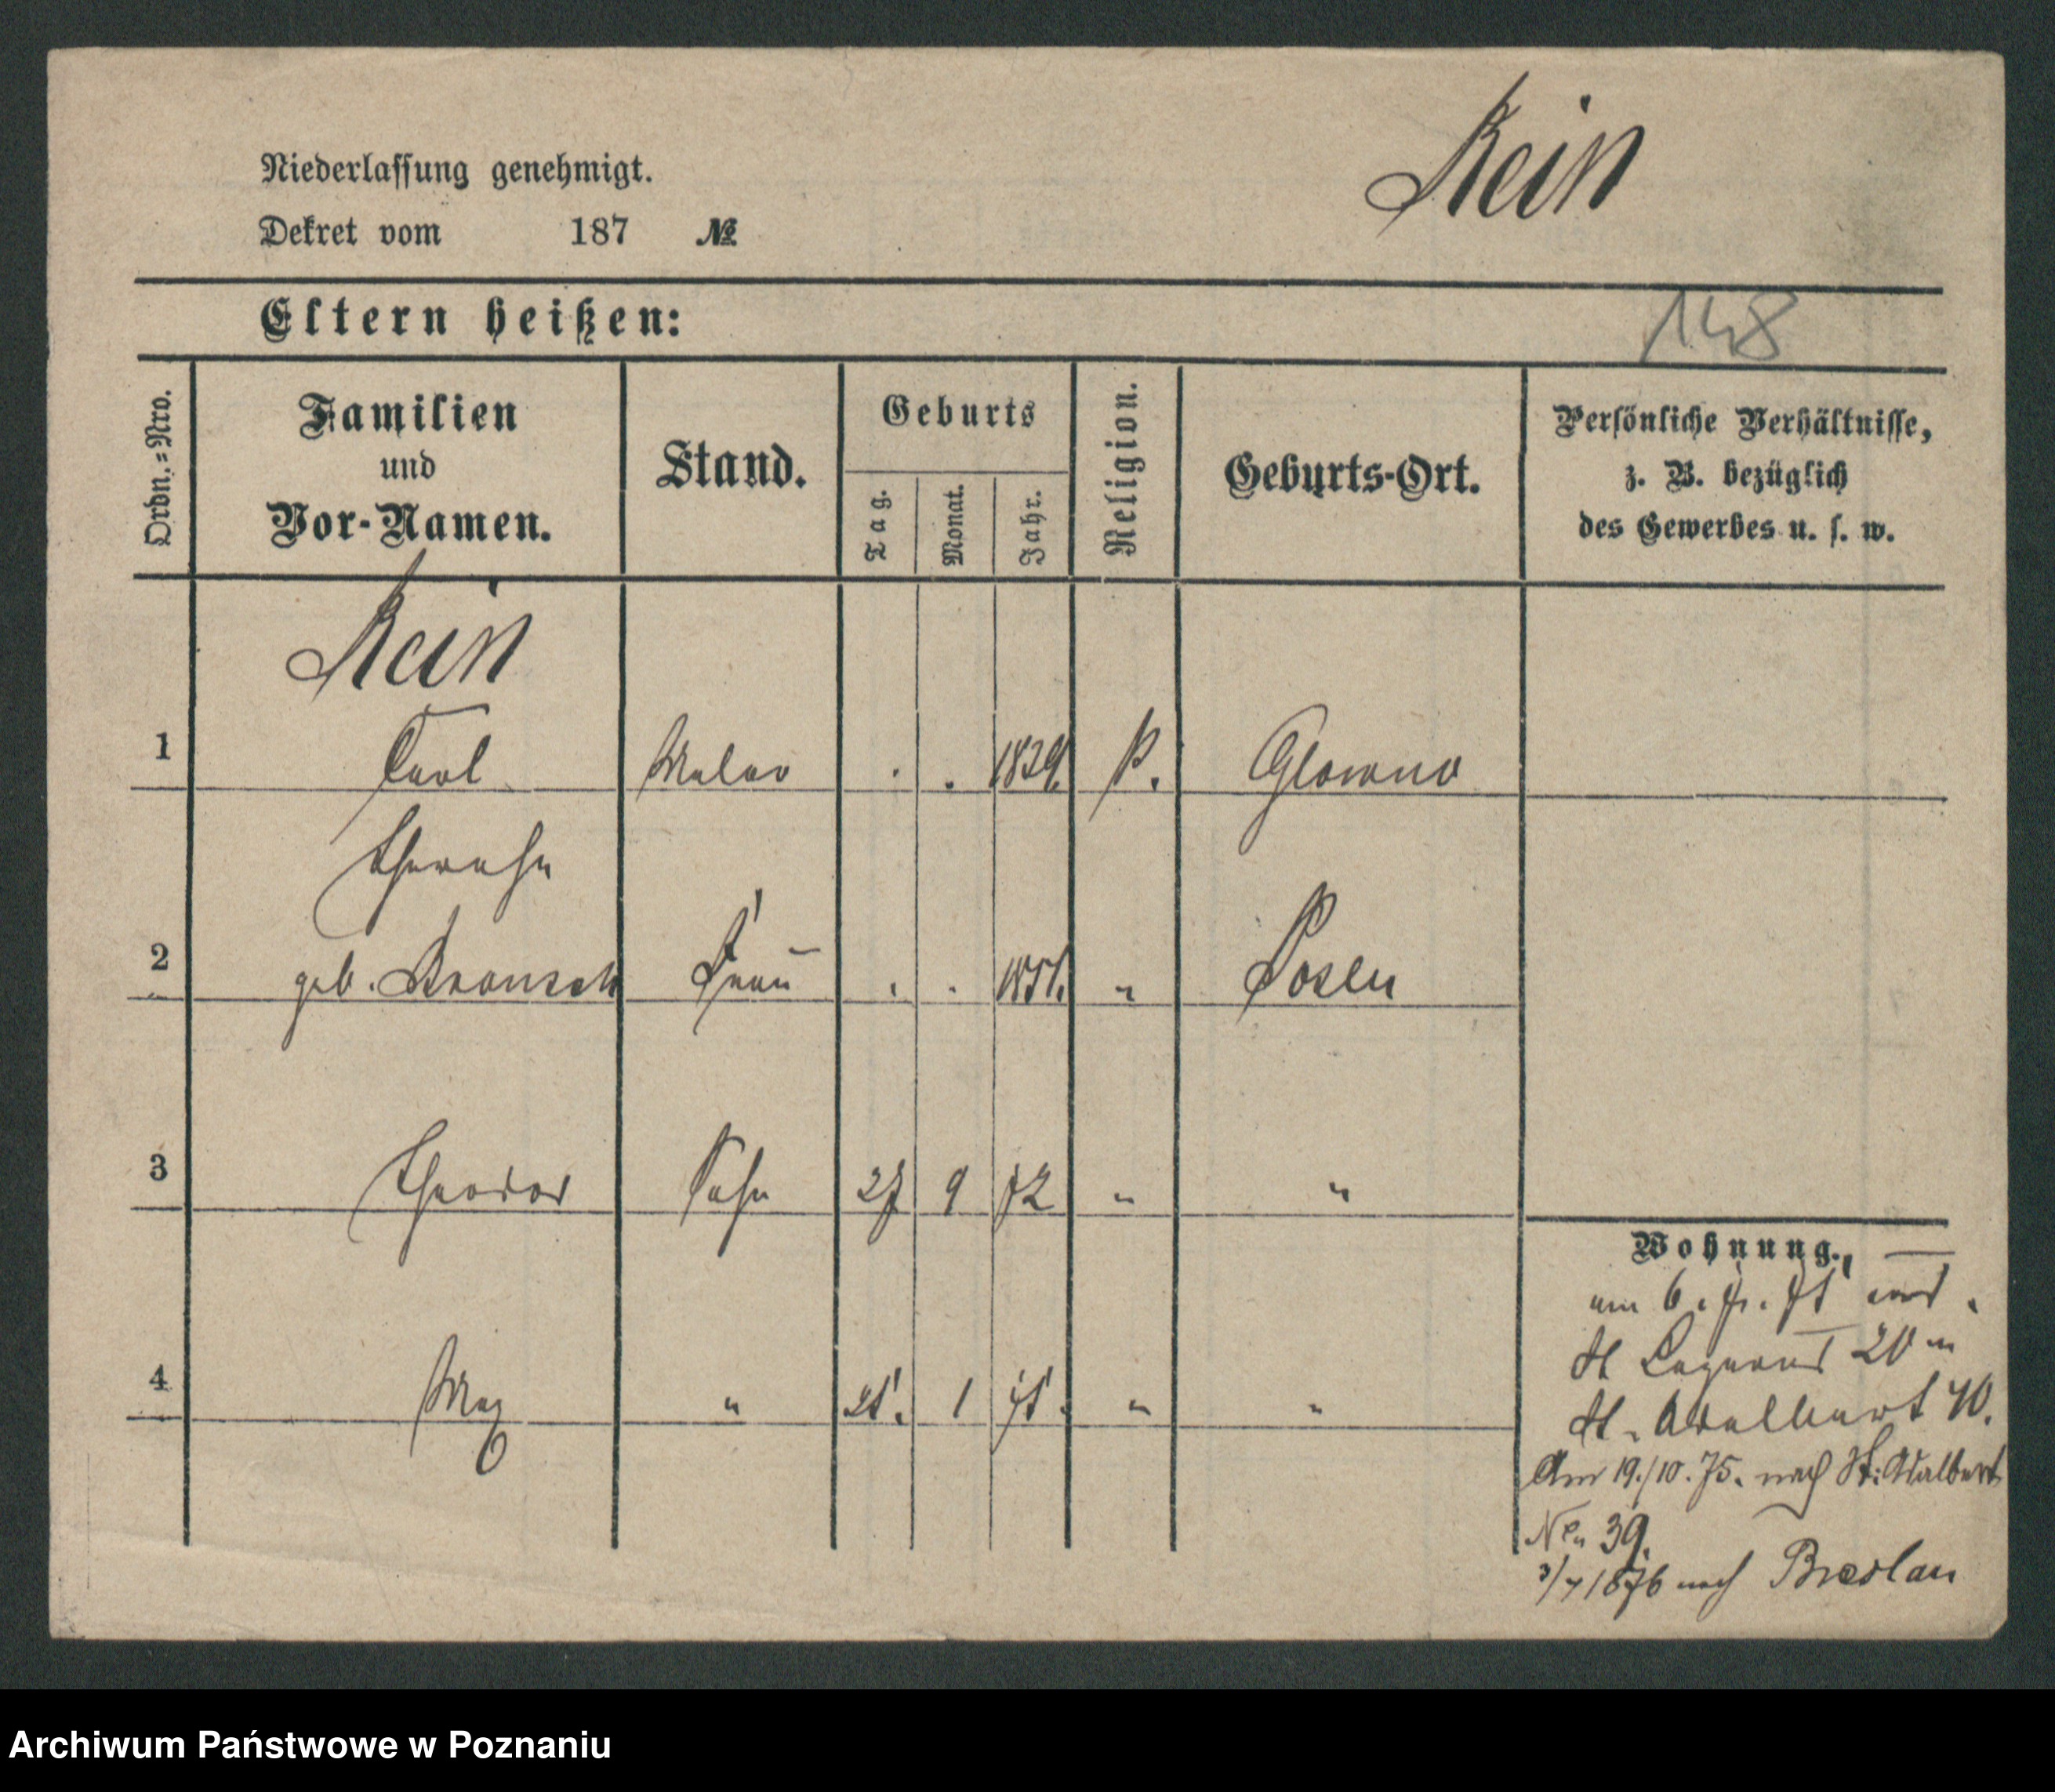 Rein
Niederlassung genehmigt.
Dekret vom 187 №
Eltern heißen:
148
Ordn.=Nro.
Familien
und
Vor-Namen.
Stand.
Geburts
Tag.
Monat.
Jahr.
Religion.
Geburts-Ort.
Persönliche Verhältnisse,
z. B. bezüglich
des Gewerbes u. s. w.
Rein
1 Carl Maler . . 1839. k.
Therese
2 geb. Frau . . 1851. " Posen
3 Theodor Sohn 27 9 72 " "
4 Max " 21. 1 75. " "
Wohnung.
am 6.
St 20
St. Adalbert 40.
Am 19./10. 75. nach St. Adalbert
No 39.
3/7 1876 nach Breslau
Archiwum Państwowe w Poznaniu